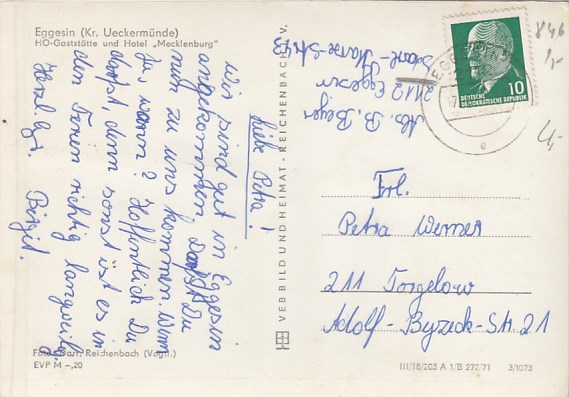 Eggesin (Kr. Ueckermünde)
HO-Gaststätte und Hotel „Mecklenburg“
Liebe Petra!
Wir sind gut in Eggesin
angekommen. Darfst Du
mal zu uns kommen? Wenn
ja, wann? Hoffentlich Du
darfst, denn sonst ist es in
den Ferien richtig langweilig.
Herzl. Gr. Birgit.
Foto: Darr, Reichenbach (Vogtl.)
EVP M –,20
VEB BILD UND HEIMAT · REICHENBACH I. V.
Abs. B. Beyer
2112 Eggesin
Karl-Marx-Str. 43
EGGESIN
10
DEUTSCHE
DEMOKRATISCHE REPUBLIK
846
1,-
4,-
Frl.
Petra Werner
211 Torgelow
Adolf-Byzeck-Str. 21
III/18/203 A 1/B 272/71 3/1073